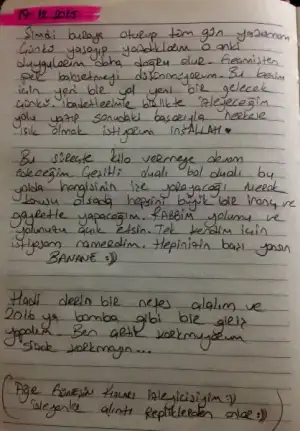 19.12.2015
Şimdi buraya oturup tüm gün yazamam
Çünkü yaşayıp yazdıklarım o anki
duygularım daha doğru olur. Geçmişten
pek bahsetmeyi düşünmüyorum. Bu benim
için yeni bir yol yeni bir gelecek
Çünkü. ibadetlerimle birlikte izleyeceğim
yolu yazıp sonundaki başarıyla herkese
ışık olmak istiyorum İNŞALLAH
Bu süreçte kilo vermeye devam
edeceğim Çeşitli dualı bol dualı bu
yolda hangisinin işe yarayacağı merak
konusu olsada hepsini büyük bir inanç ve
gayretle yapacağım. RABBİM yolumu ve
yolunuzu açık etsin. Tek kendim için
istiyosam namerdim. Hepinizin başı yansın
BANANE :))
Hadi derin bir nefes alalım ve
2016 ya bomba gibi bir giriş
yapalım. Ben artık korkmuyorum
sizde korkmayın...
izleyicisiyim :))
izleyenler alıntı repliklerden anlar :))